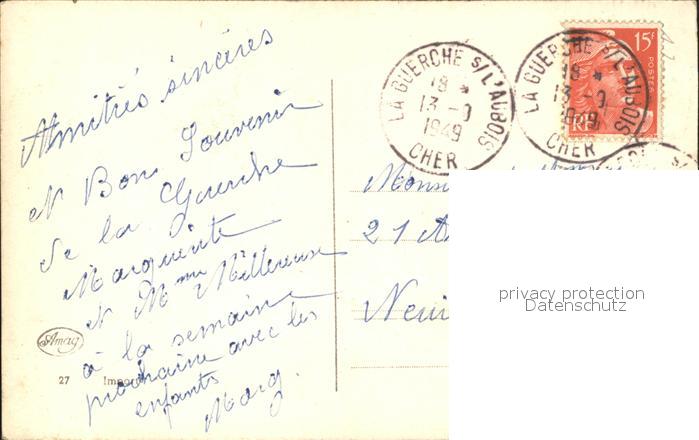 Amitiés sincères
et Bon Souvenir
de la Guerche
Marguerite
et Mme
à la semaine
prochaine avec les
enfants
Marg.
Amag
27
LA GUERCHE S/L'AUBOIS
18 *
13 - 9
1949
CHER
LA GUERCHE S/L'AUBOIS
18 *
13 - 9
1949
CHER
15F
POSTES
RF
21
privacy protection
Datenschutz